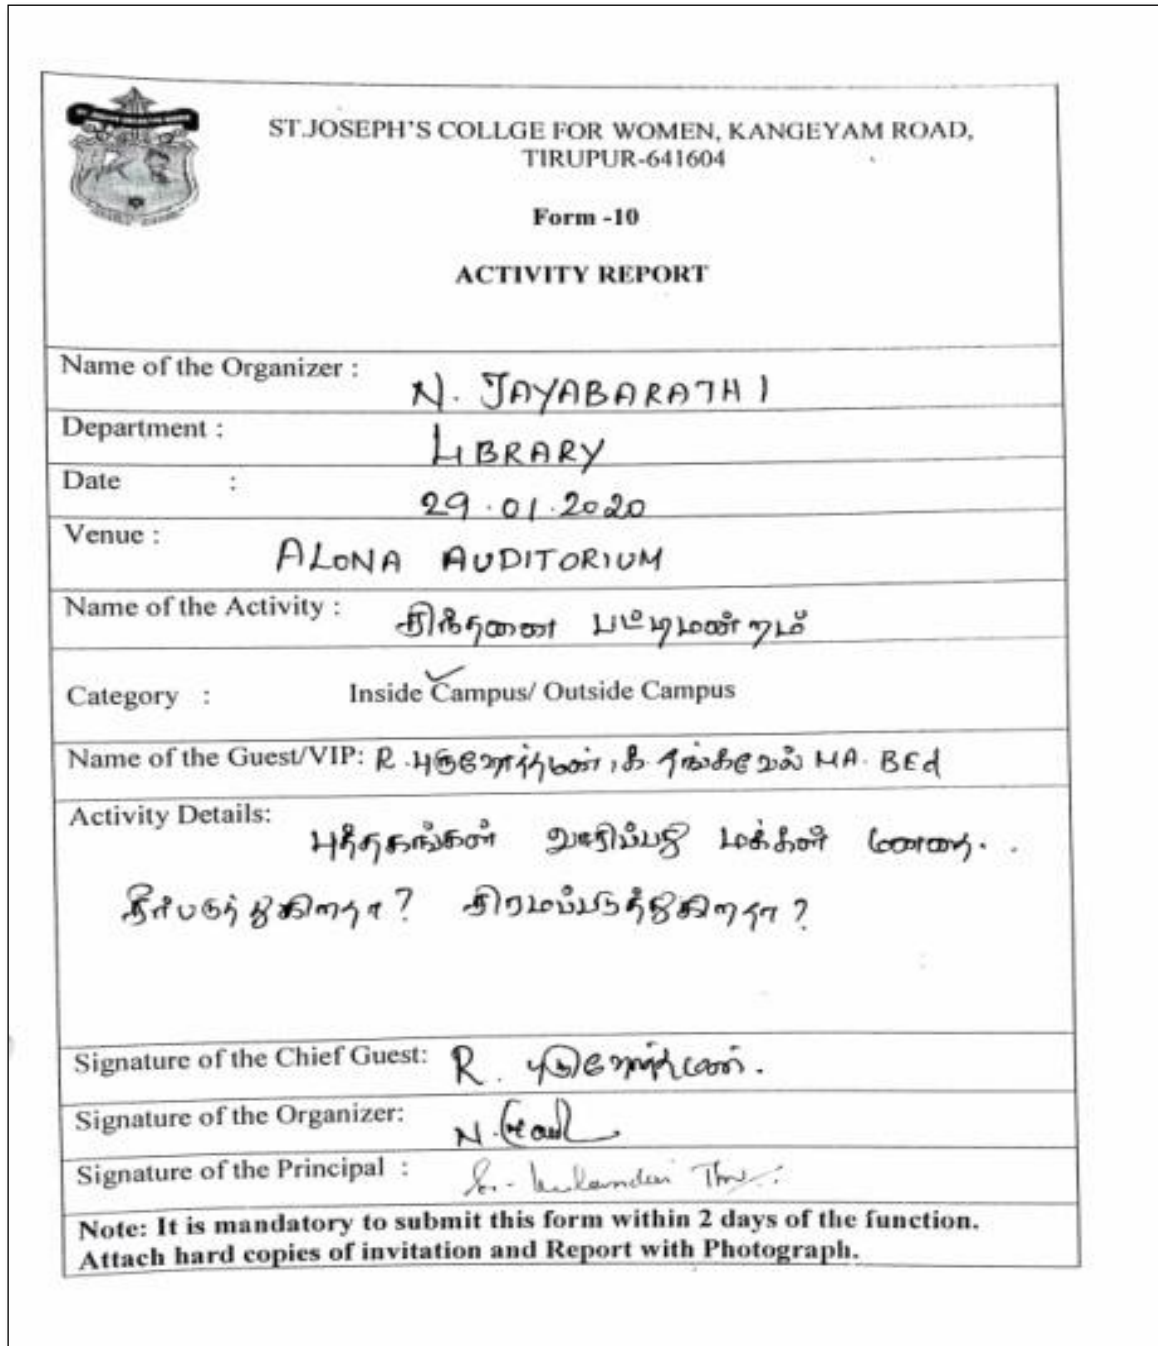 ST.JOSEPH'S COLLGE FOR WOMEN, KANGEYAM ROAD,
TIRUPUR-641604
Form -10
ACTIVITY REPORT
Name of the Organizer : N. JAYABARATHI
Department : LIBRARY
Date : 29.01.2020
Venue : ALONA AUDITORIUM
Name of the Activity : சிந்தனை பட்டிமன்றம்
Category : Inside Campus/ Outside Campus
Name of the Guest/VIP: R. புருஷோத்தமன், க. தங்கவேல் MA. BEd
Activity Details:
புத்தகங்கள் வாசிப்பது மக்கள் மனதை..
சீர்படுத்துகிறதா? சிரமப்படுத்துகிறதா?
Signature of the Chief Guest: R. புருஷோத்தமன்.
Signature of the Organizer: N.
Signature of the Principal :
Note: It is mandatory to submit this form within 2 days of the function.
Attach hard copies of invitation and Report with Photograph.